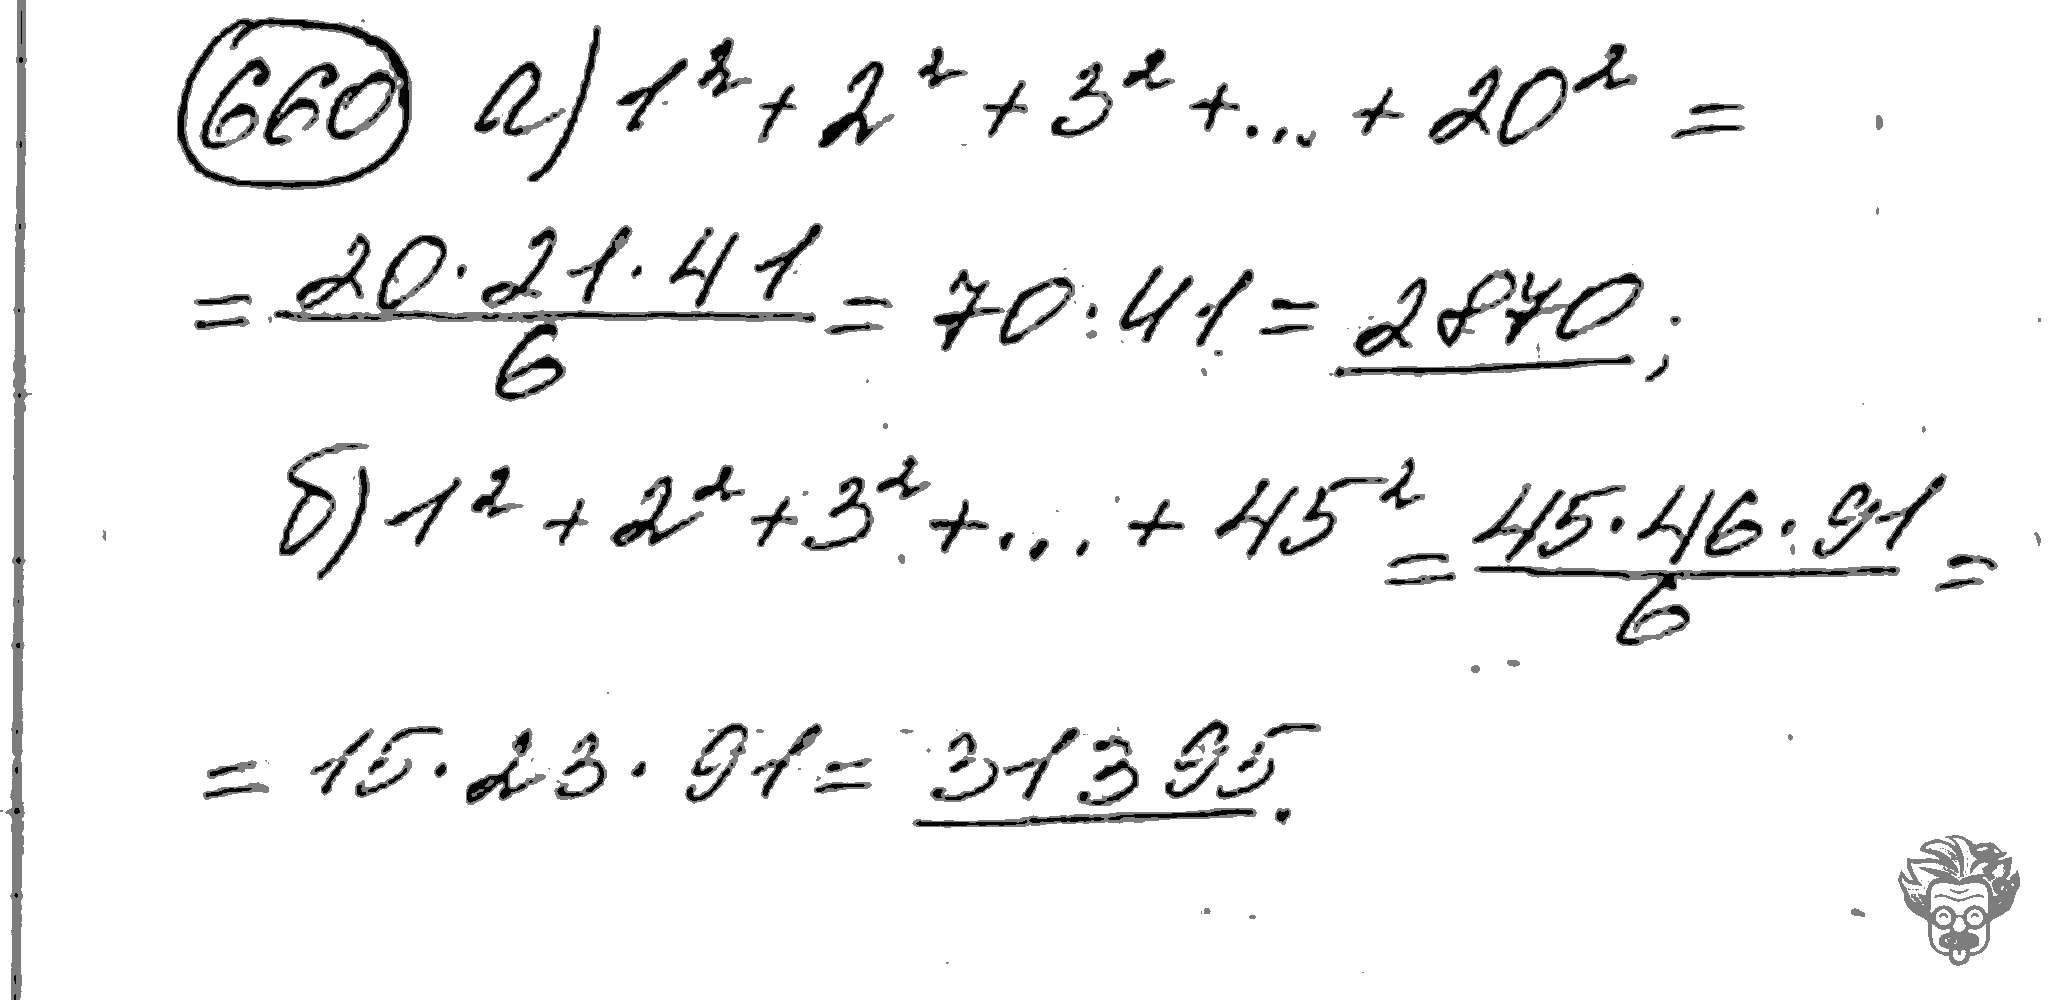 660 а) 1² + 2² + 3² + ... + 20² =
= 20·21·41/6 = 70·41 = 2870;
б) 1² + 2² + 3² + ... + 45² = 45·46·91/6 =
= 15·23·91 = 31395.